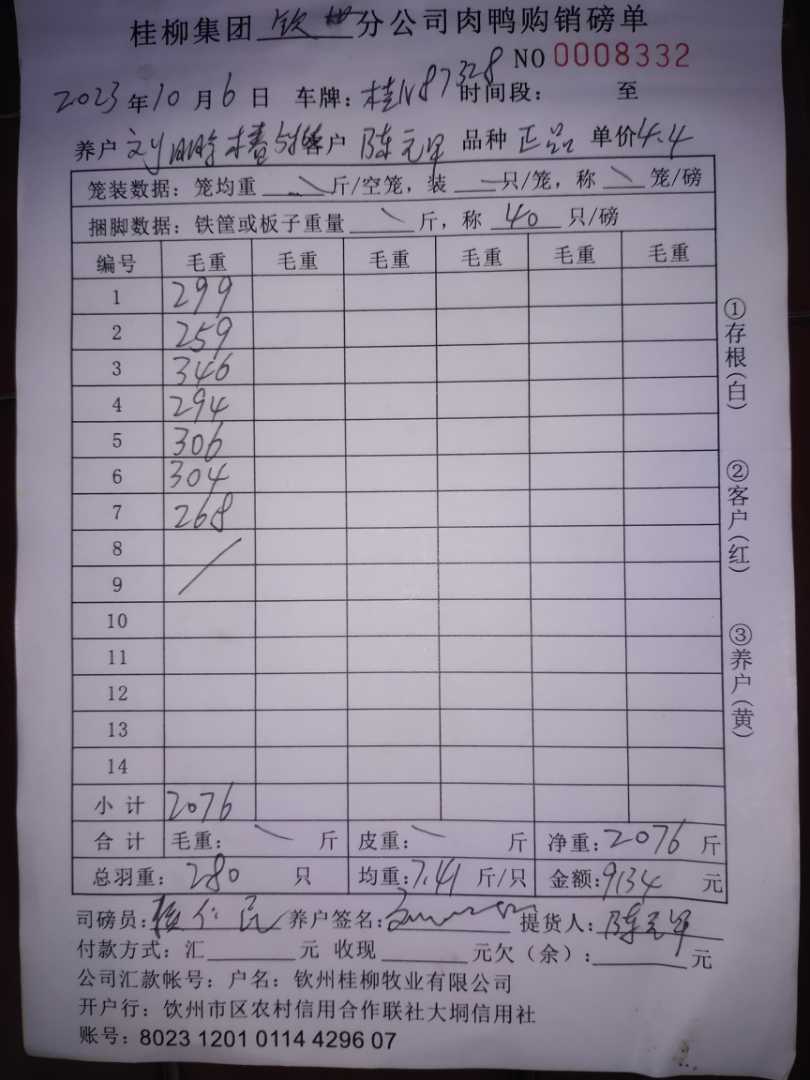 桂柳集团 钦州 分公司肉鸭购销磅单
NO 0008332
2023年10月6日 车牌：桂N87328 时间段： 至
养户 刘 客户 陈元军 品种 正品 单价4.4
笼装数据：笼均重 斤/空笼，装 只/笼，称 笼/磅
捆脚数据：铁筐或板子重量 斤，称 40 只/磅
编号 毛重 毛重 毛重 毛重 毛重 毛重
1 299
2 259
3 346
4 294
5 306
6 304
7 268
8
9
10
11
12
13
14
小 计 2076
合 计 毛重： 斤 皮重： 斤 净重：2076 斤
总羽重：280 只 均重：7.41 斤/只 金额：9134 元
司磅员： 养户签名： 提货人：陈元军
付款方式：汇 元 收现 元欠（余）： 元
公司汇款帐号：户名：钦州桂柳牧业有限公司
开户行：钦州市区农村信用合作联社大垌信用社
账号：8023 1201 0114 4296 07
①存根(白)
②客户(红)
③养户(黄)